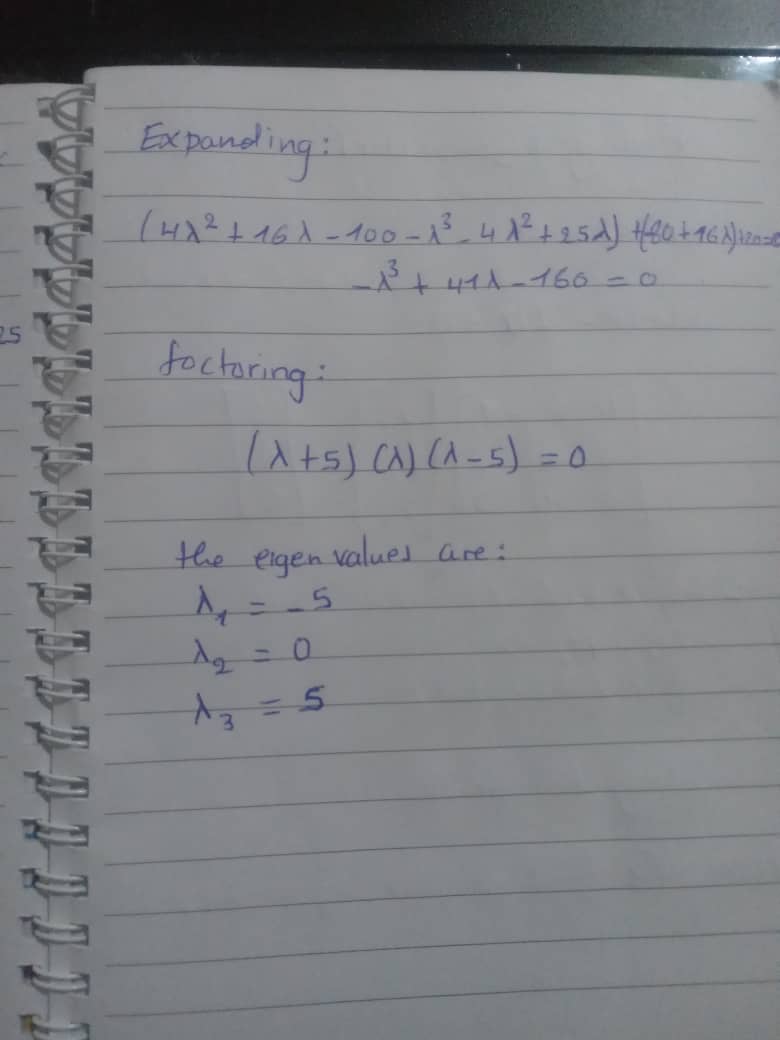 Expanding:
(4λ² + 16λ - 100 - λ³ - 4λ² + 25λ) +(80 + 16λ)
-λ³ + 41λ - 160 = 0
factoring:
(λ+5) (λ) (λ-5) = 0
the eigen values are:
λ₁ = -5
λ₂ = 0
λ₃ = 5
25